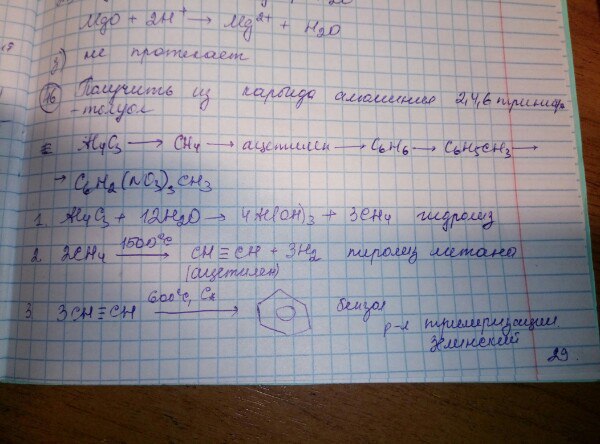 MgO + 2H⁺ → Mg²⁺ + H₂O
з) не протекает
16 Получить из карбида алюминия 2,4,6 тринитро
-толуол
Al₄C₃ → CH₄ → ацетилен → C₆H₆ → C₆H₅CH₃ →
→ C₆H₂(NO₂)₃CH₃
1. Al₄C₃ + 12H₂O → 4Al(OH)₃ + 3CH₄ гидролиз
2. 2CH₄ 1500°C → CH≡CH + 3H₂ пиролиз метана
(ацетилен)
3 3CH≡CH 600°C, Cк → бензол
р-я тримеризации
Зелинский
29